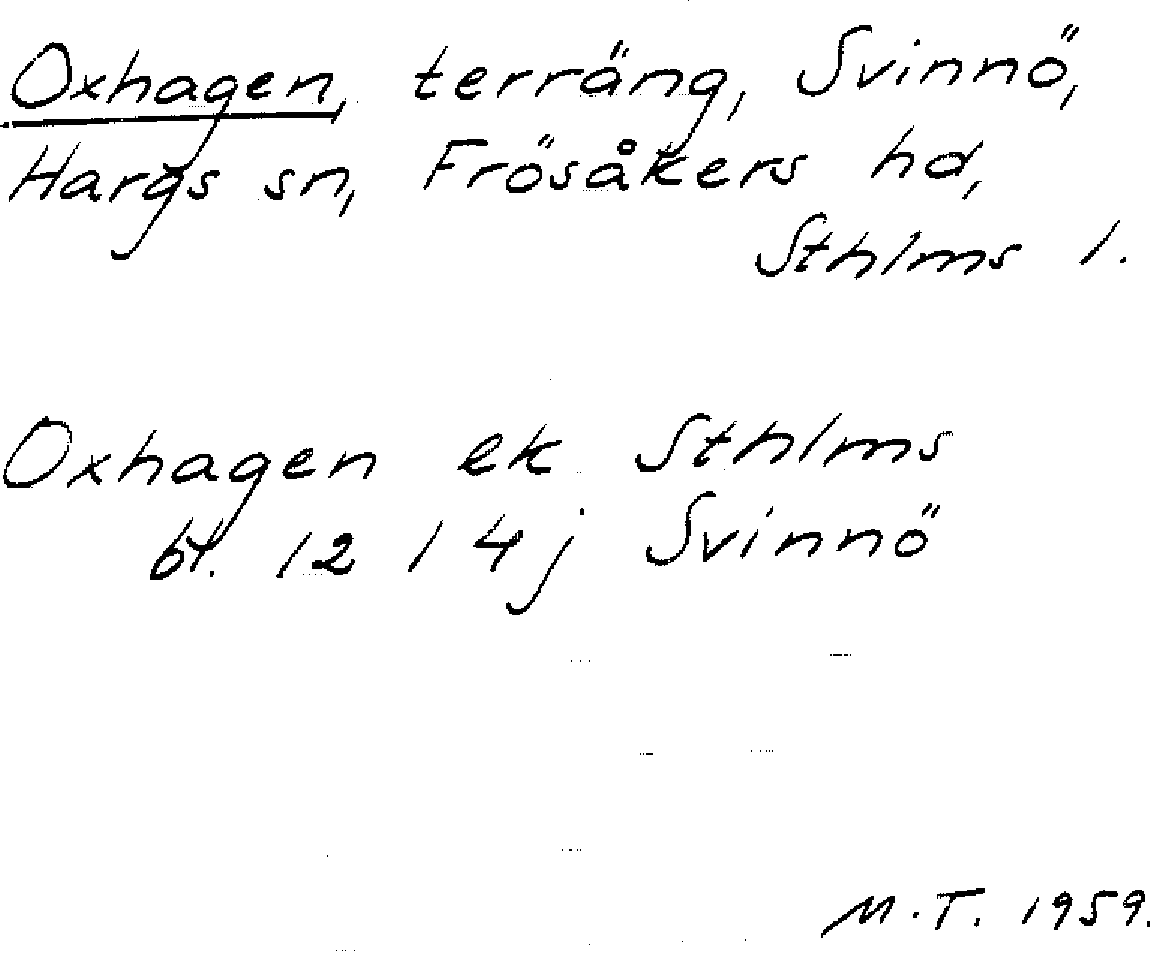 Oxhagen, terräng, Svinnö,
Hargs sn, Frösåkers hd,
Sthlms l.
Oxhagen ek Sthlms
bl. 12 I 4j Svinnö
M.T. 1959.